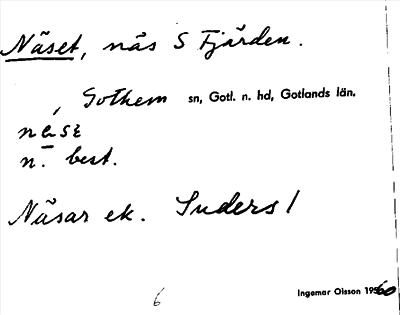 Näset, näs S Fjärden.
Gothem sn, Gotl. n. hd, Gotlands län.
n. best.
Näsar ek. Suders 1
6
Ingemar Olsson 1960